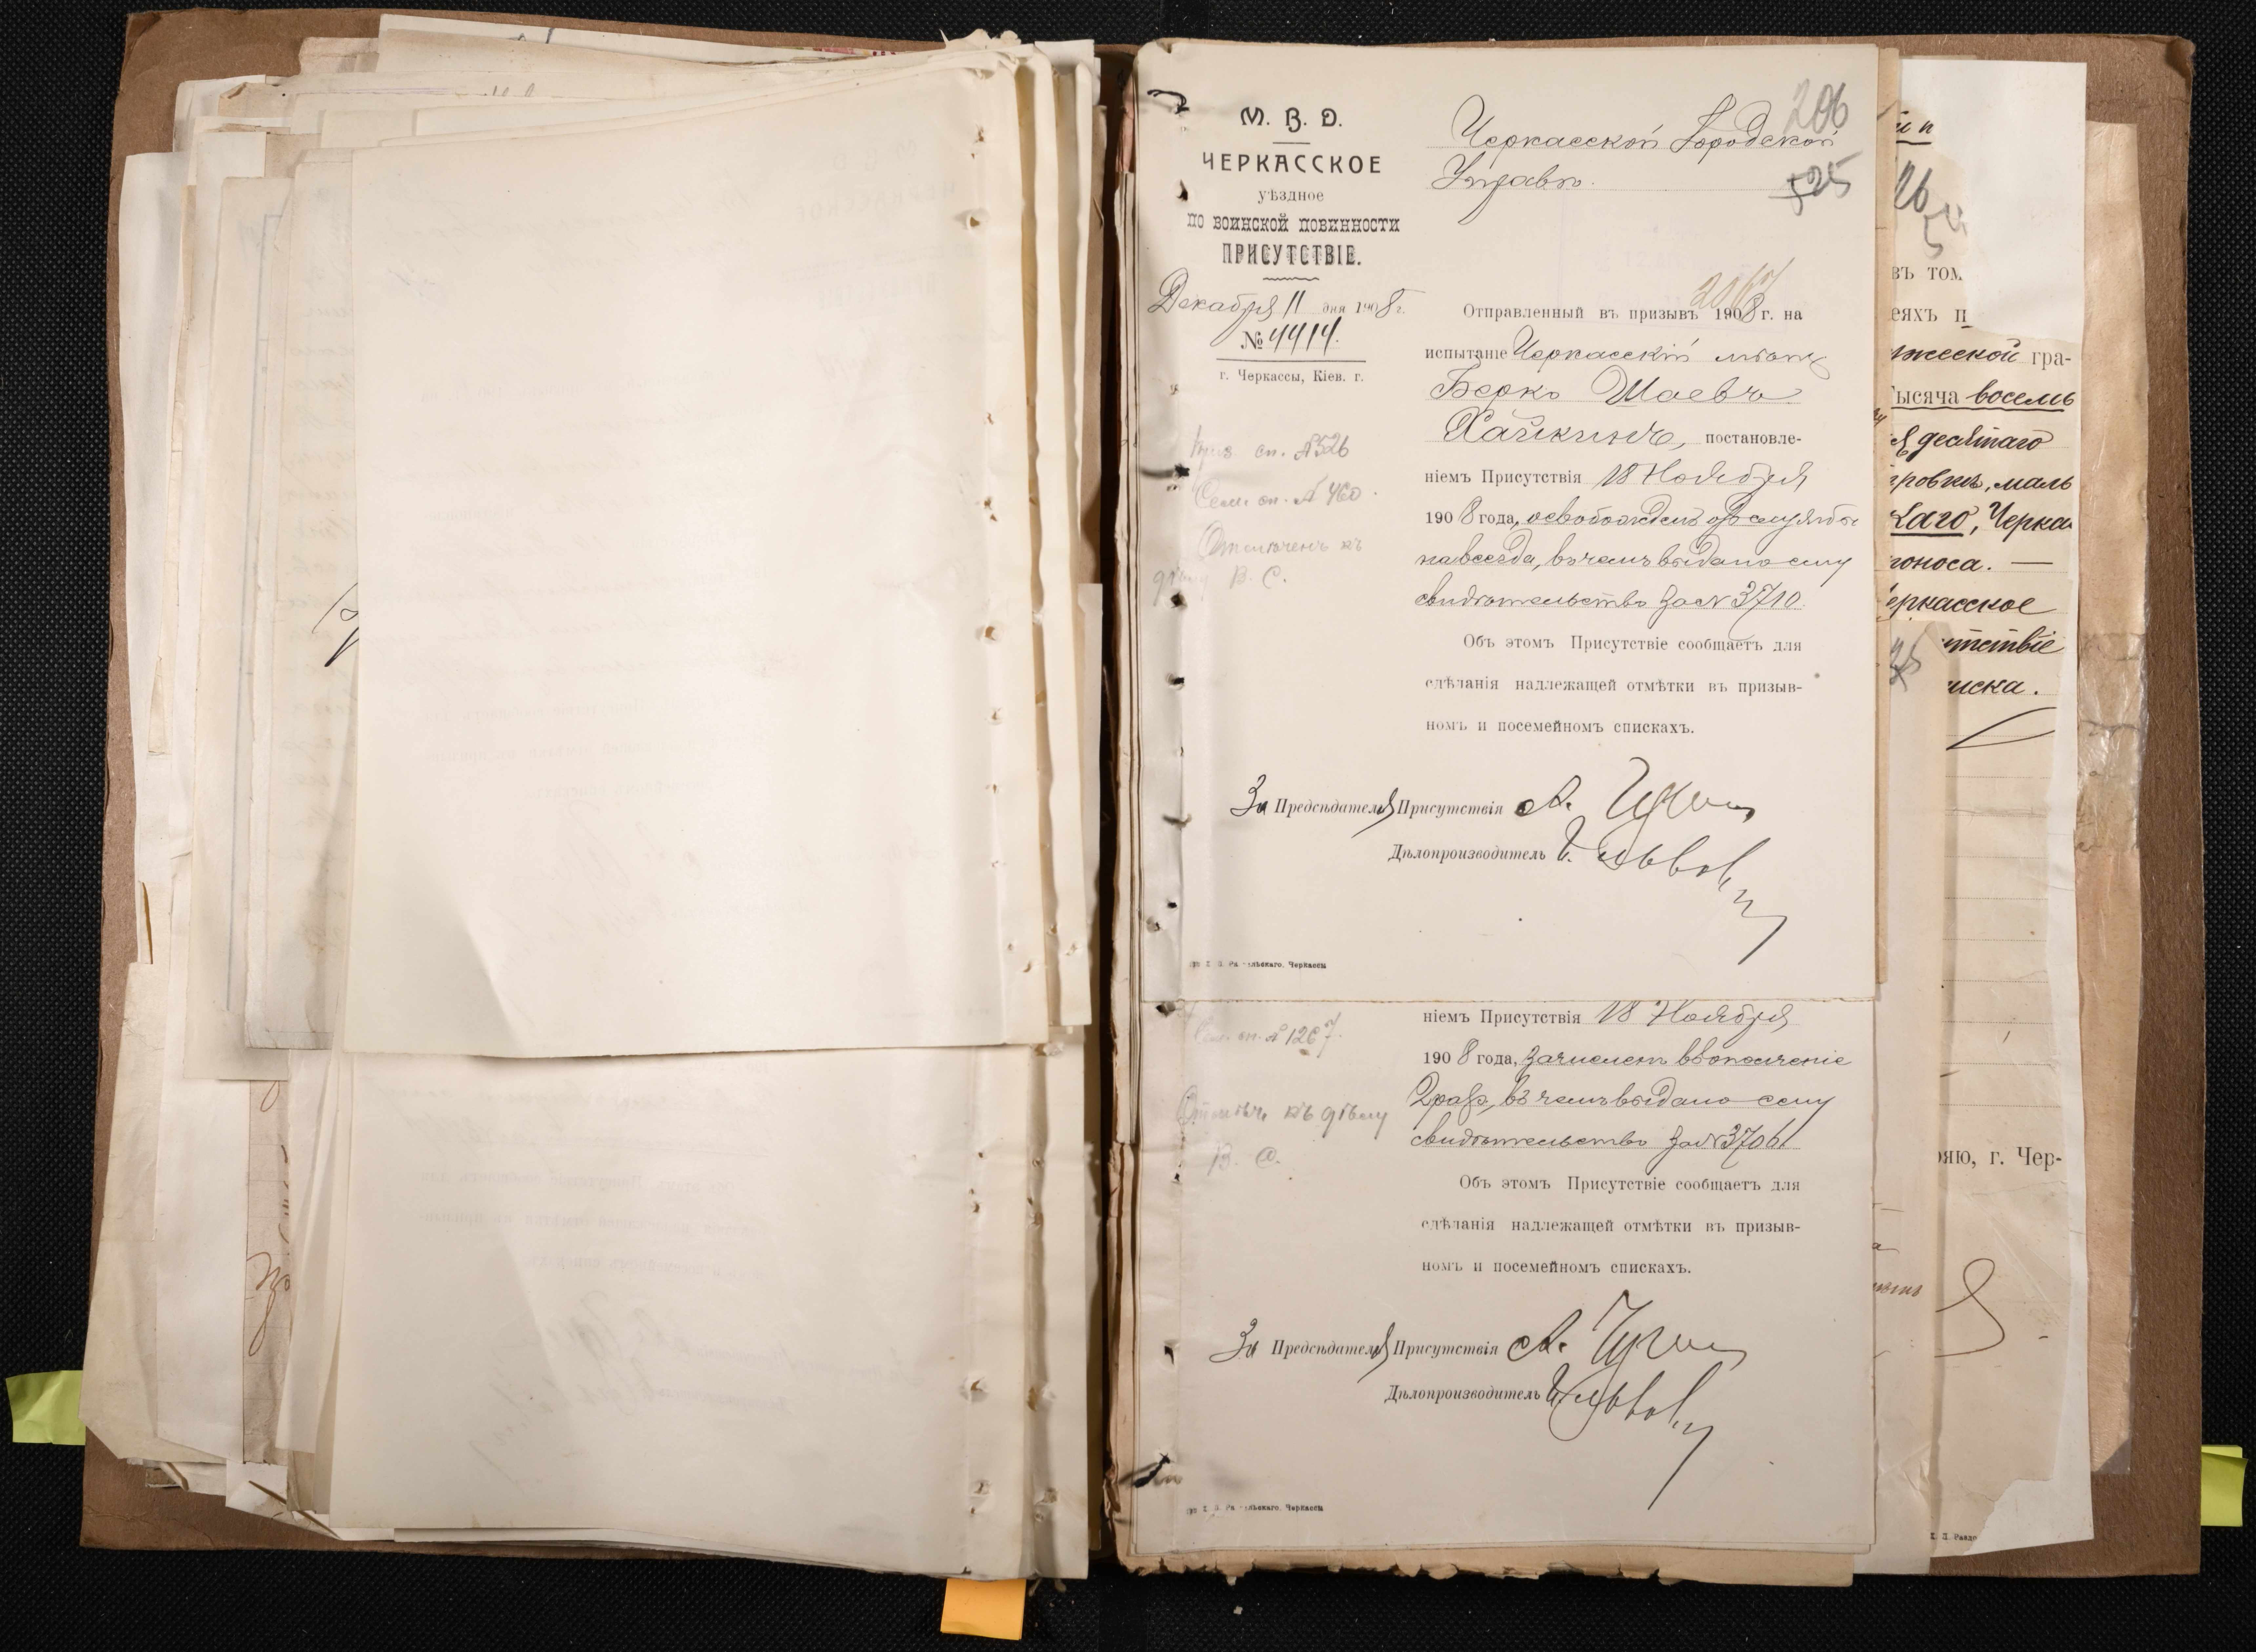 М. В. Д.
ЧЕРКАССКОЕ
уѣздное
ПО ВОИНСКОЙ ПОВИННОСТИ
ПРИСУТСТВІЕ.
Декабря 11 дня 1908 г.
№ 4414.
г. Черкассы, Кіев. г.
206
Черкасской Городской
Управѣ.
525
Отправленный въ призывъ 1908 г. на
испытаніе Черкасскій мѣщ
Берко Шаевъ
Хайкинъ, постановле-
ніемъ Присутствія 18 Ноября
1908 года, освобожденъ отъ службы
навсегда, въ чемъ выдано ему
свидѣтельство за № 3710.
Объ этомъ Присутствіе сообщаетъ для
сдѣланія надлежащей отмѣтки въ призыв-
номъ и посемейномъ спискахъ.
За Предсѣдателя Присутствія А.
Дѣлопроизводитель
Приз сп. № 526
Сем. сп. № 460.
Отмѣченъ къ
дѣлу В. С.
Черкассы
ніемъ Присутствія 18 Ноября
1908 года, зачисленъ въ ополченіе
2 раз., въ чемъ выдано ему
свидѣтельство за № 3706.
Объ этомъ Присутствіе сообщаетъ для
сдѣланія надлежащей отмѣтки въ призыв-
номъ и посемейномъ спискахъ.
За Предсѣдателя Присутствія А.
Дѣлопроизводитель
Сем. сп. № 1267.
къ дѣлу
В. С.
Черкассы
въ том
еяхъ п
жеской гра-
Тысяча восемь
десятаго
ровкѣ, маль
каго, Черка
оноса. —
еркасское
тствіе
иска.
ряю, г. Чер-